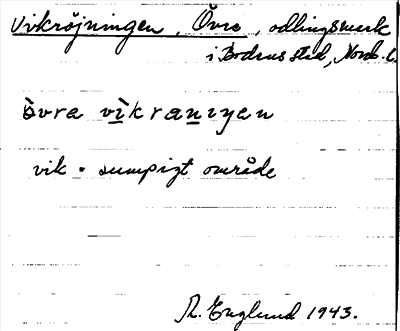 Vikröjningen, Övre, odlingsmark
i Bodens stad, Norrb. l.
òvra vìkranɩŋen
vik = sumpigt område
R. Englund 1943.